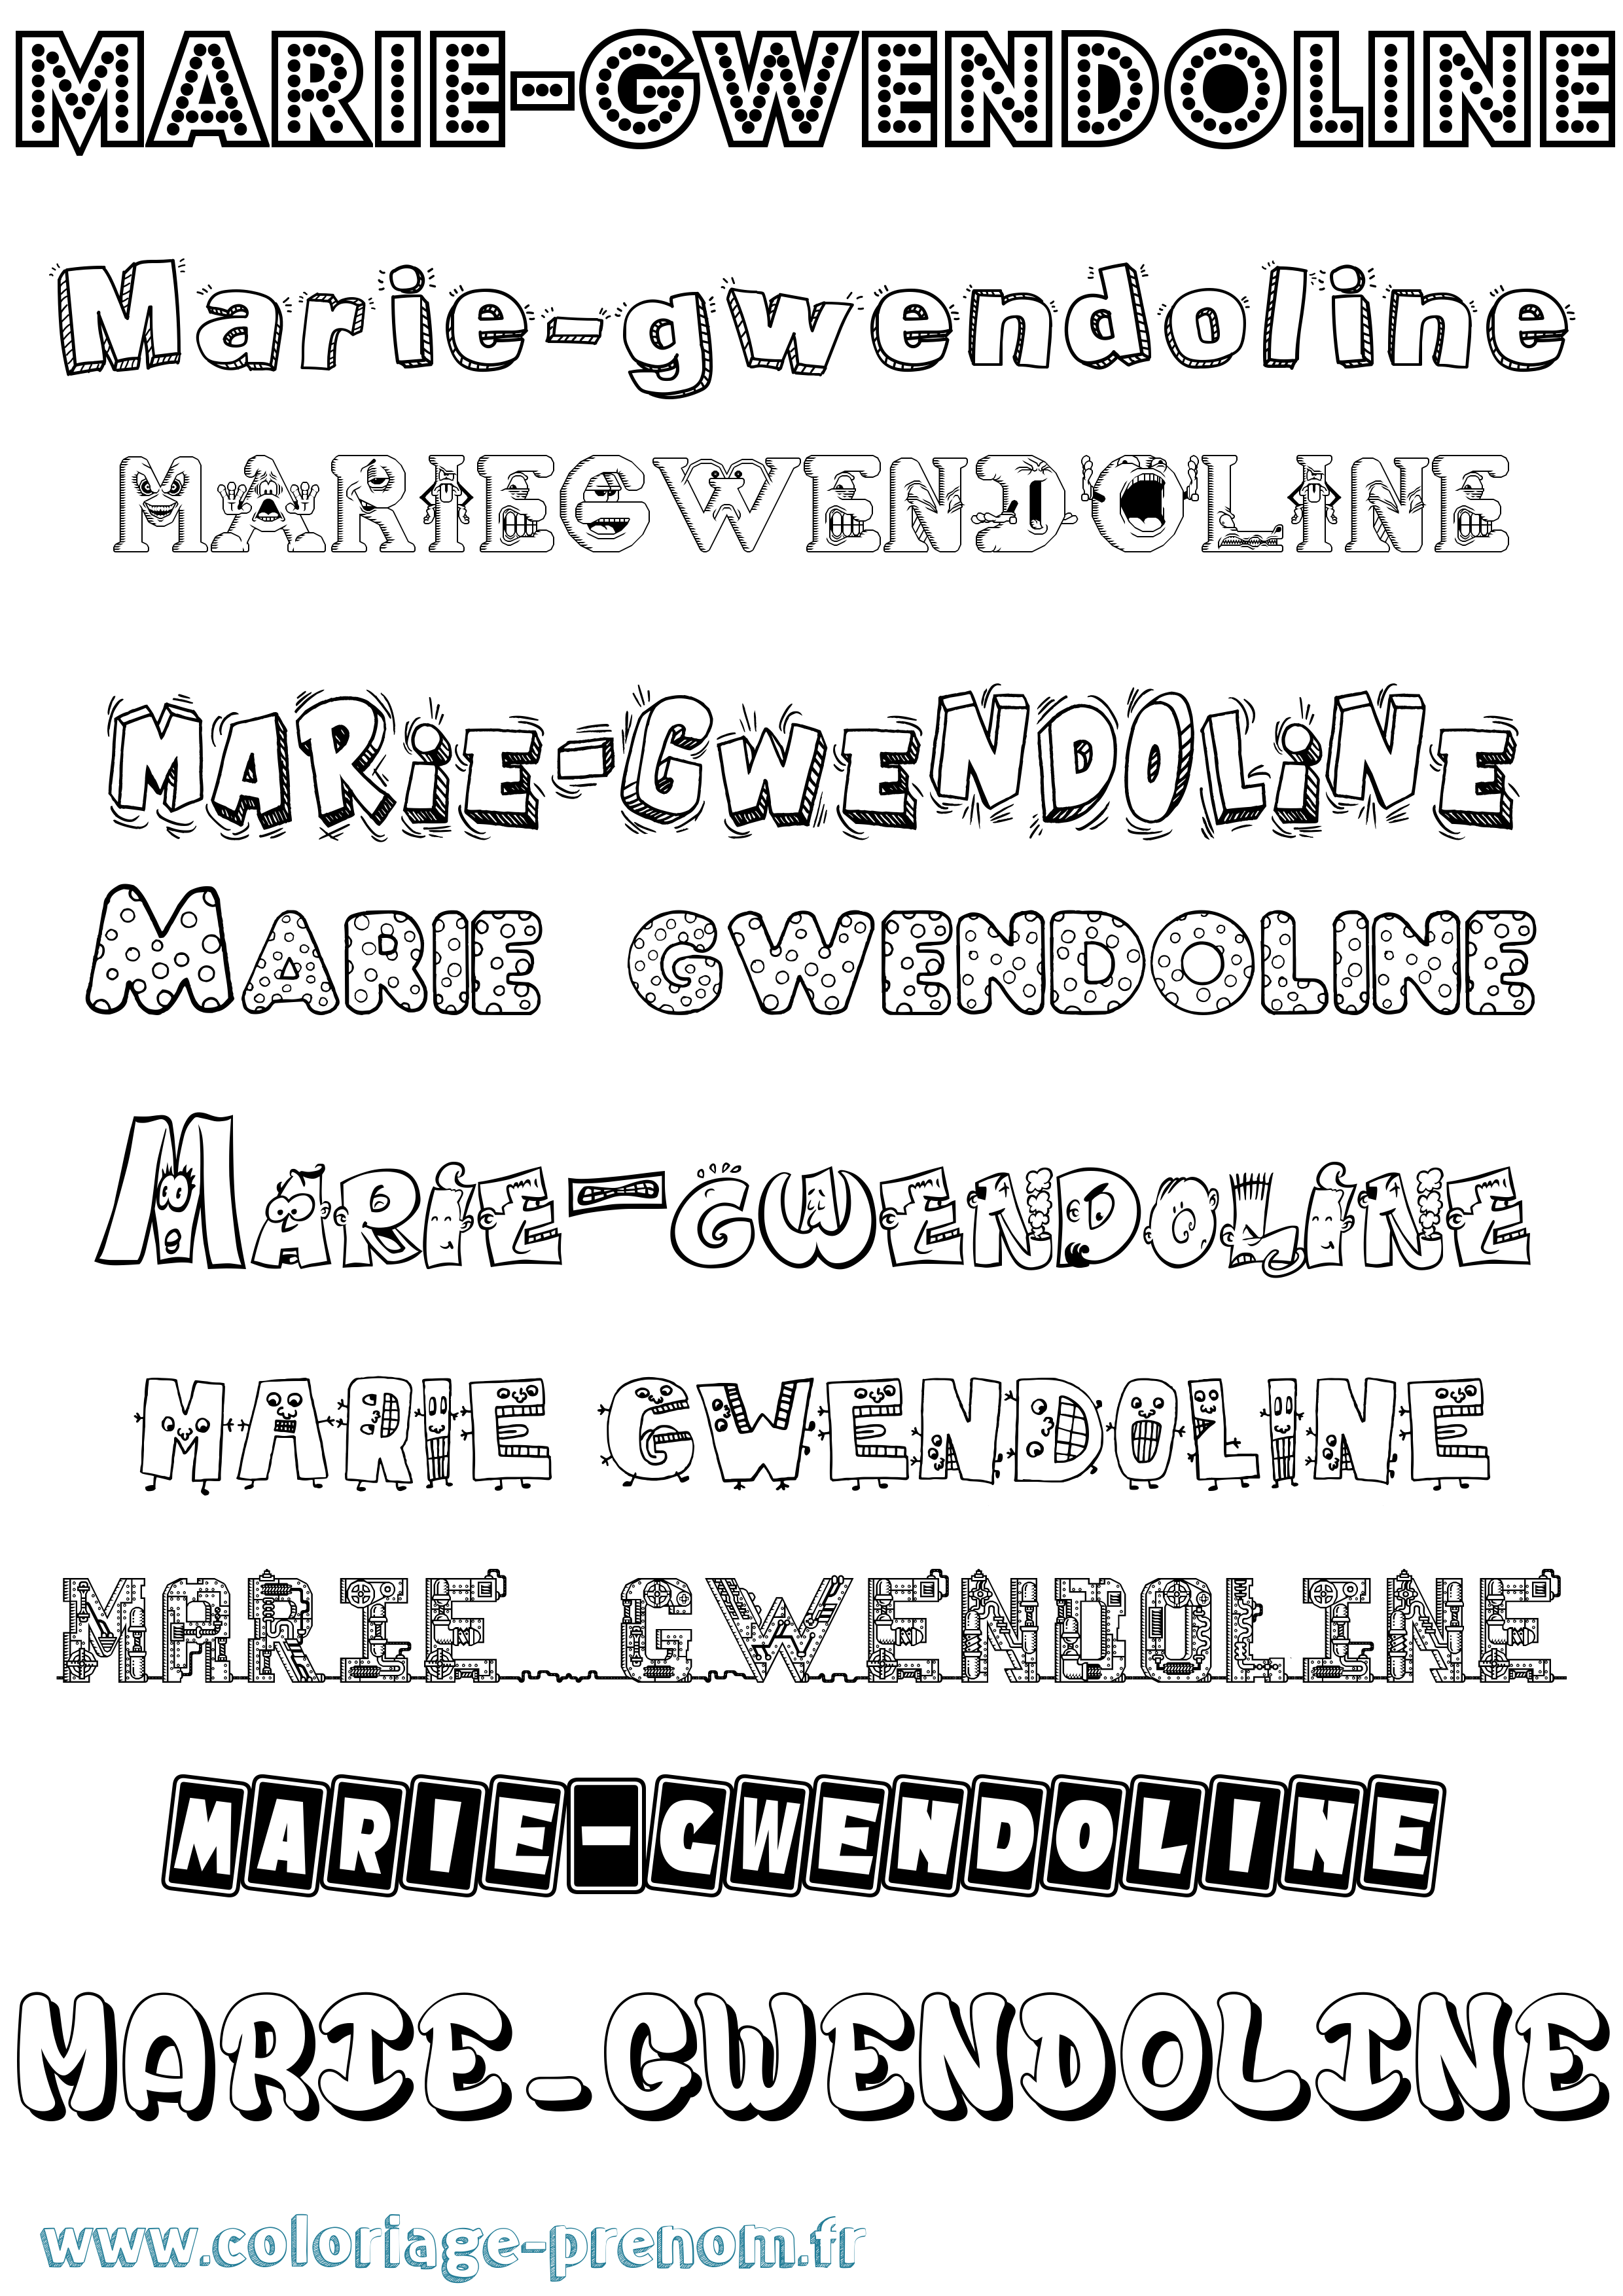 MARIE-GWENDOLINE
Marie-gwendoline
MARIEGWENDOLINE
MARiE-GWENDOLiNE
MARIE GWENDOLINE
MARIE-GWENDOLINE
MARIE GWENDOLINE
MARIE GWENDOLINE
MARIE-GWENDOLINE
MARIE-GWENDOLINE
www.coloriage-prenom.fr